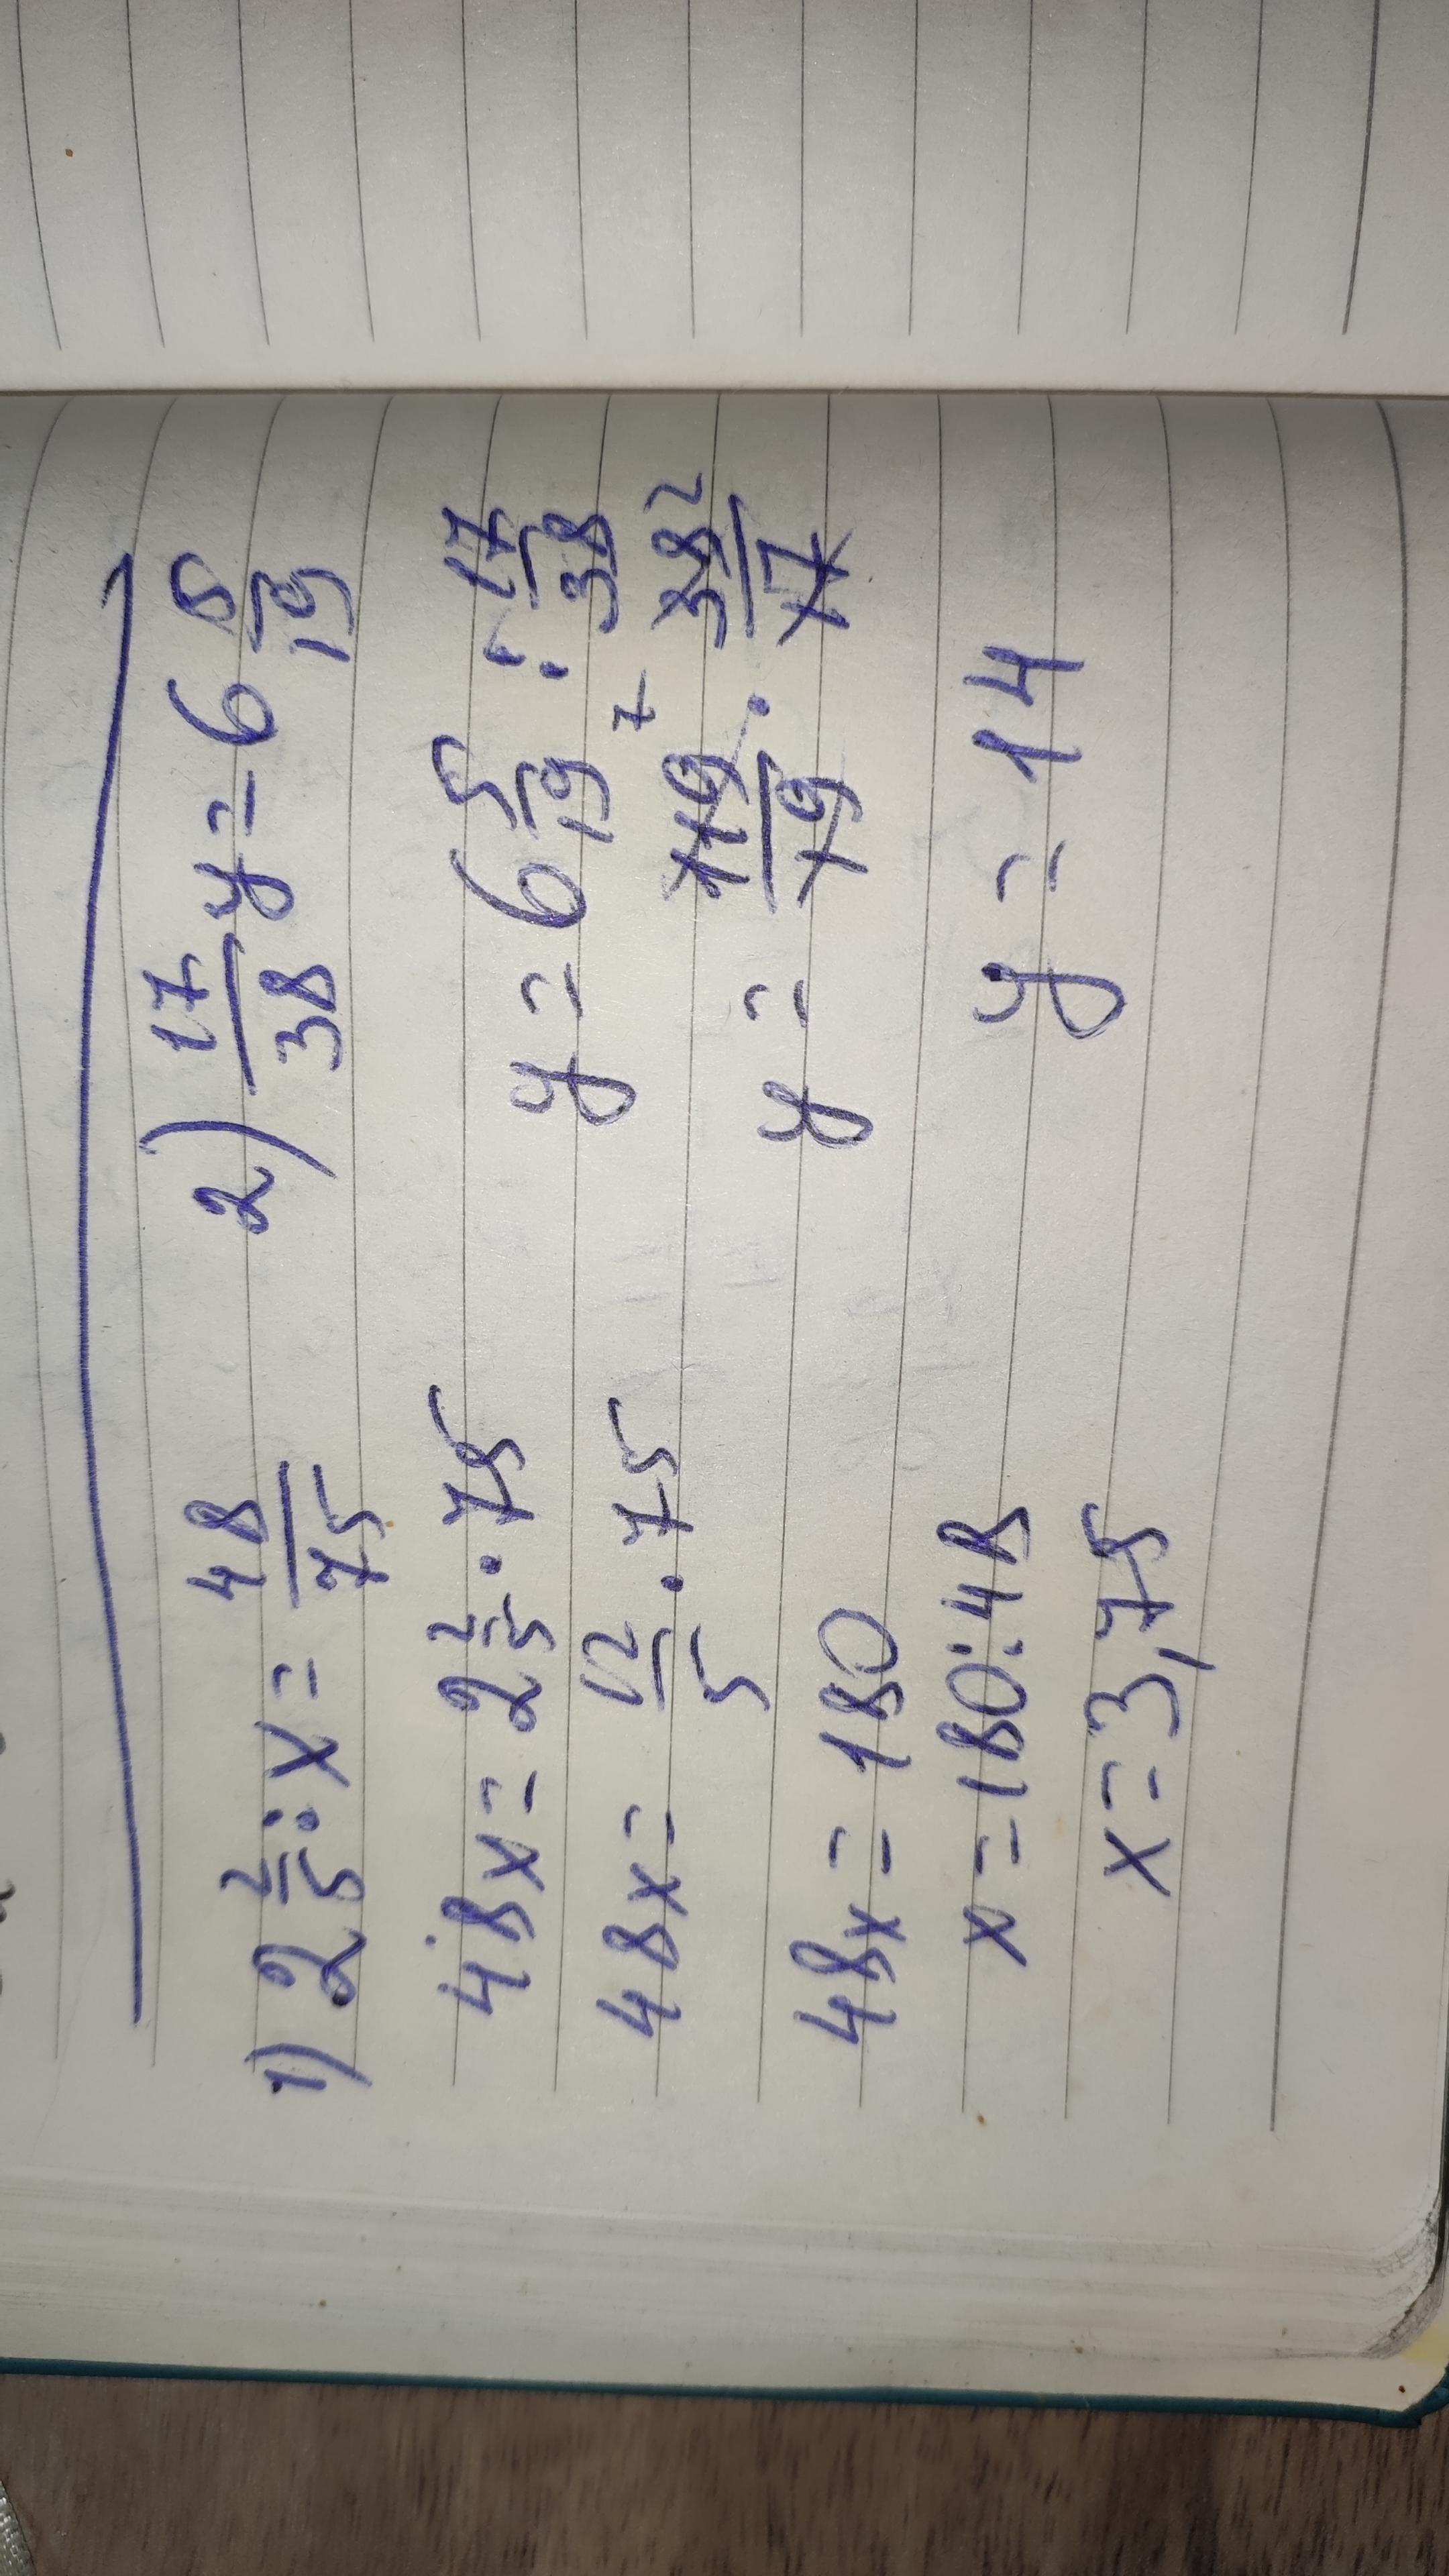 1) 2 2/5 : x = 48/75
48x = 2 2/5 · 75
48x = 12/5 · 75
48x = 180
x = 180 : 48
x = 3,75
2) 17/38 y = 6 5/19
y = 6 5/19 : 17/38
y = 119/19 · 38/17
7 2
y = 14